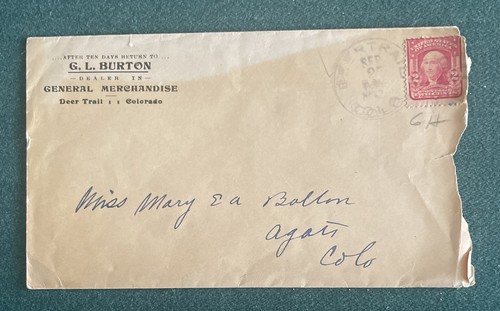 ....AFTER TEN DAYS RETURN TO....
G. L. BURTON
DEALER IN
GENERAL MERCHANDISE
Deer Trail : : Colorado
SEP
2 2
Miss Mary E a Bolton
Agate
Colo